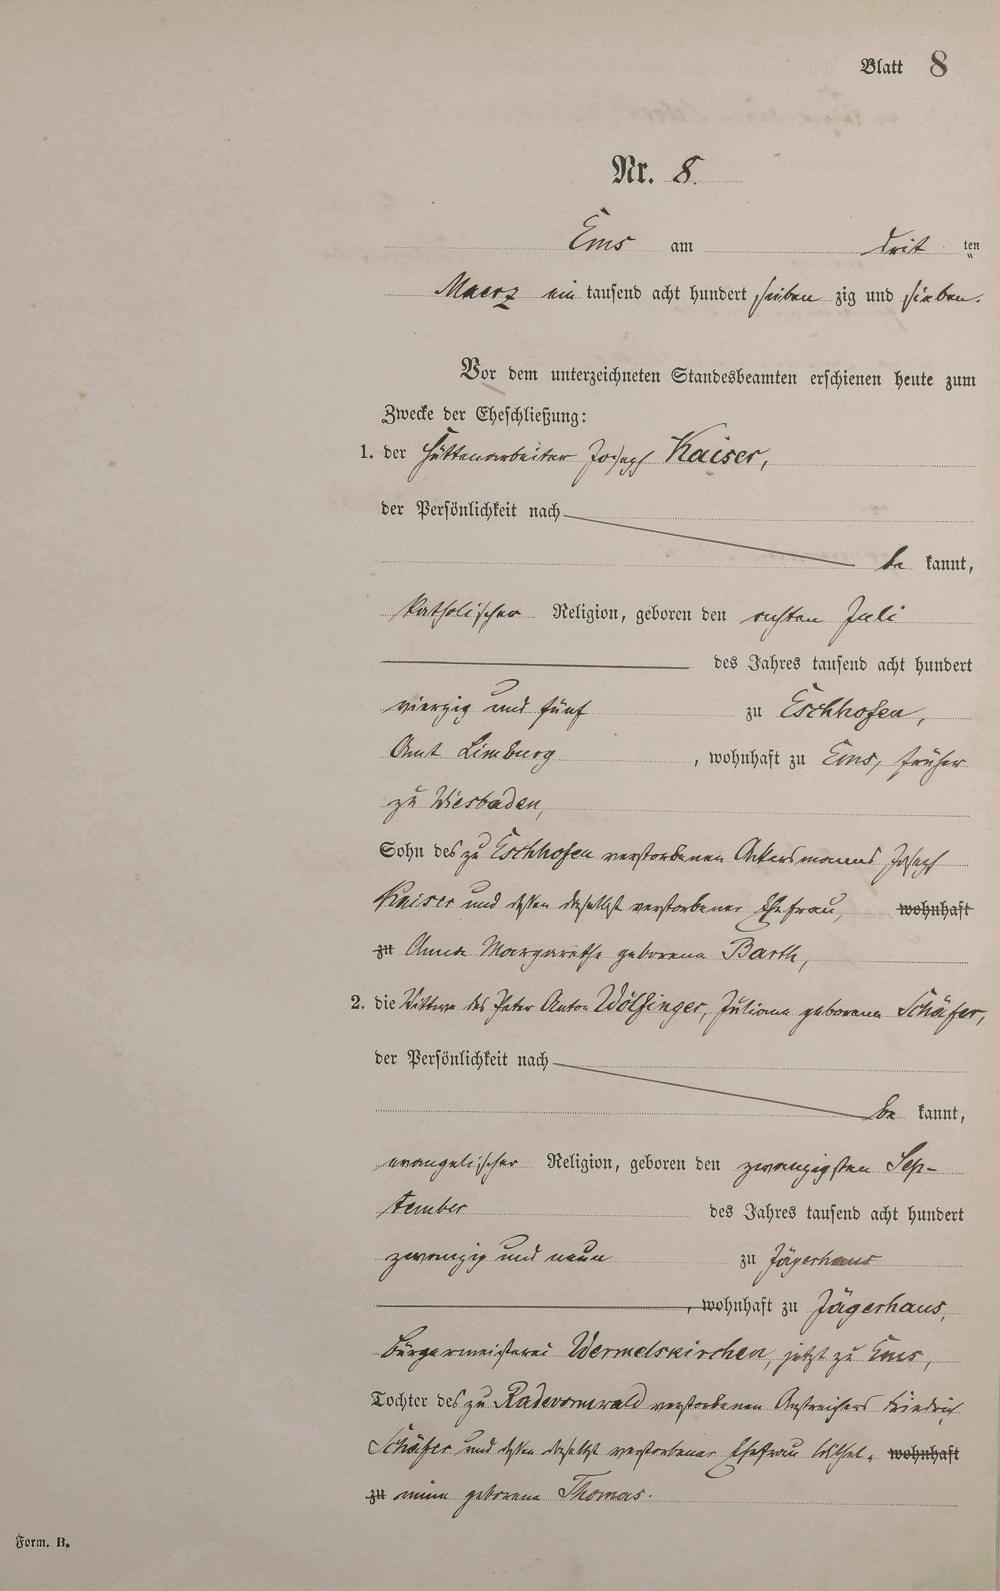 Blatt 8
Nr. 8.
Ems am drit ten
Maerz ein tausend acht hundert sieben zig und sieben.
Vor dem unterzeichneten Standesbeamten erschienen heute zum
Zwecke der Eheschließung:
1. der Hüttenarbeiter Joseph Kaiser,
der Persönlichkeit nach
be kannt,
katholischer Religion, geboren den achten Juli
des Jahres tausend acht hundert
vierzig und fünf zu Eschhofen,
Amt Limburg, wohnhaft zu Ems, früher
zu Wiesbaden,
Sohn des zu Eschhofen verstorbenen Ackersmanns Joseph
Kaiser und dessen daselbst verstorbener Ehefrau, wohnhaft
zu Anna Margarethe geborene Barth,
2. die Wittwe des Peter Anton Wölfinger, Juliane geborene Schäfer,
der Persönlichkeit nach
be kannt,
evangelischer Religion, geboren den zwanzigsten Sep-
tember des Jahres tausend acht hundert
zwanzig und neun zu Jägerhaus
, wohnhaft zu Jägerhaus,
Bürgermeisterei Wermelskirchen, jetzt zu Ems,
Tochter des zu Radevormwald verstorbenen Anstreichers Friedrich
Schäfer und dessen daselbst verstorbener Ehefrau Wilhel- wohnhaft
zu mine geborene Thomas.
Form. B.